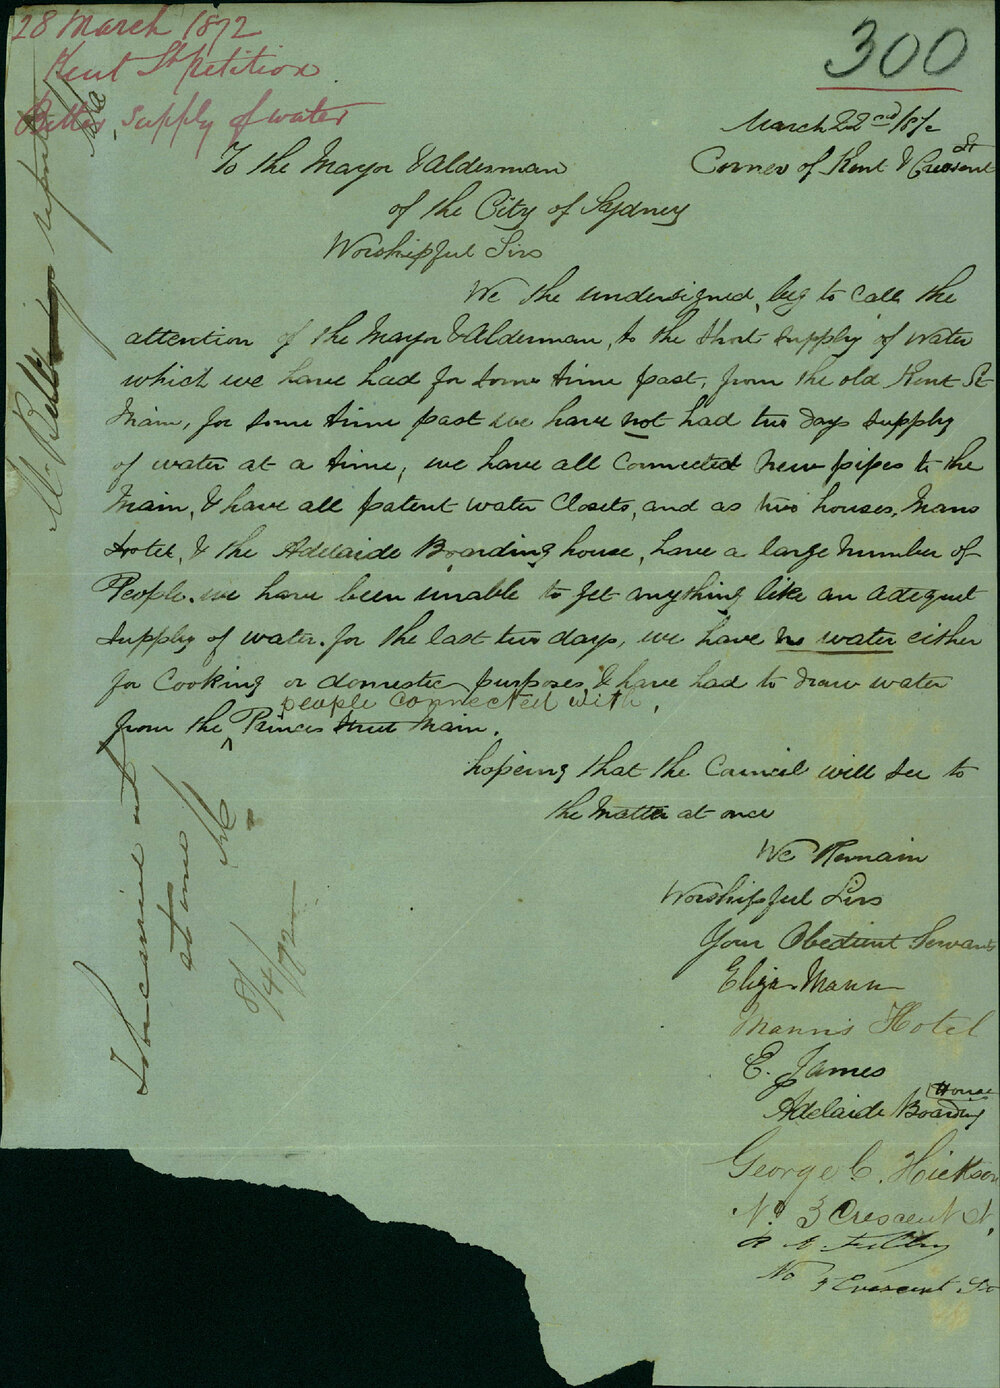 28 March 1872
Kent St Petition
Better supply of water
300
March 22nd 1872
Corner of Kent & Crescent St
To the Mayor & Alderman
of the City of Sydney
Worshipful Sirs
We the undersigned, beg to call the
attention of the Mayor & Alderman, to the Short supply of water
which we have had for some time past, from the old Kent St
Main, for some time past we have not had two days supply
of water at a time, we have all connected new pipes to the
Main, & have all patent water Closets, and as two houses, Manns
Hotel, & the Adelaide Boarding house, have a large number of
People. we have been unable to get anything like an adequet
supply of water. for the last two days, we have no water either
for Cooking or domestic purposes, & have had to draw water
from the people connected with Princes Street Main.
hopeing that the Council will see to
the Matter at once
We Remain
Worshipful Sirs
Your Obedient Servants
Eliza Mann
Mann's Hotel
E. James
Adelaide Boarding House
George C. Hickson
No 3 Crescent St,
No Crescent St
Mr Bell report
To be carried out
at once
8/4/72